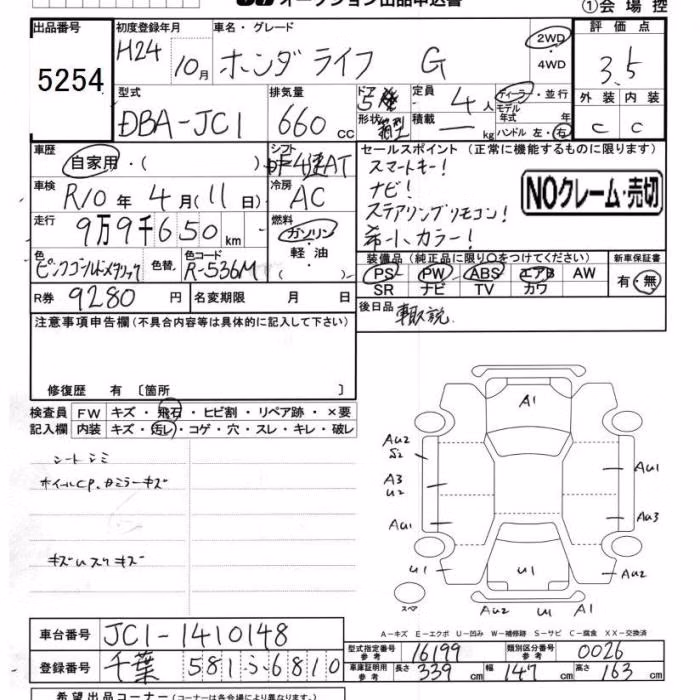 オークション出品申込書
①会場控
出品番号 初度登録年月 車名・グレード 評価点
5254 H24 10月 ホンダ ライフ G 2WD・4WD 3.5
型式 排気量 ドア 定員 ディーラー・並行 外装 内装
DBA-JC1 660cc 5 4人 モデル年式 年 C C
形状 箱型 積載 ― kg ハンドル 左・右
車歴 シフト セールスポイント (正常に機能するものに限ります)
自家用・( ) F4速AT スマートキー!
車検 冷房 ナビ! NOクレーム・売切
R10年4月(11日) AC ステアリングリモコン!
走行 燃料 希小カラー!
9万9千650km ガソリン・軽油( )
色 色替 色コード 装備品(純正品に限り○をつけてください) 新車保証書
ピンクゴールドメタリック R-536M PS PW ABS エアB AW 有・無
SR ナビ TV カワ
R券 9280円 名変期限 月 日 後日品 取説
注意事項申告欄(不具合内容等は具体的に記入して下さい)
修復歴 有 〔箇所 〕
検査員 FW キズ・飛石・ヒビ割・リペア跡・×要
記入欄 内装 キズ・汚レ・コゲ・穴・スレ・キレ・破レ
シートシミ
ホイールCP.ドアミラーキズ
A1
AU2
S2
A3
U2
AU1
AU1
AU3
U1
U1
AU2
スペア
AU2 U1 A1
A―キズ E―エクボ U―凹み W―補修跡 S―サビ C―腐食 XX―交換済
車台番号 JC1-1410148
型式指定番号 参考 16199 類別区分番号 参考 0026
登録番号 千葉 581 ふ 6810
車庫証明用 参考 長さ 339cm 幅 147cm 高さ 163cm
希望出品コーナー(コーナーは各会場により異なります。)